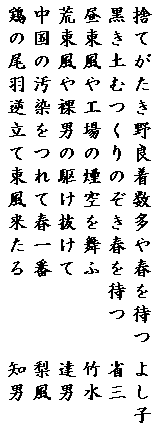 捨てがたき野良着数多や春を待つ　よし子
黒き土むつくりのぞき春を待つ　省三
昼東風や工場の煙空を舞ふ　竹水
荒東風や裸男の駆け抜けて　達男
中国の汚染をつれて春一番　梨風
鶏の尾羽逆立て東風来たる　知男